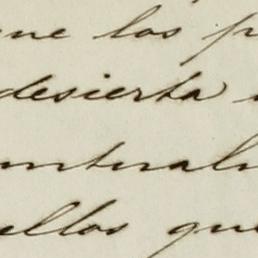 que los p
desierta
ntural
ellos que